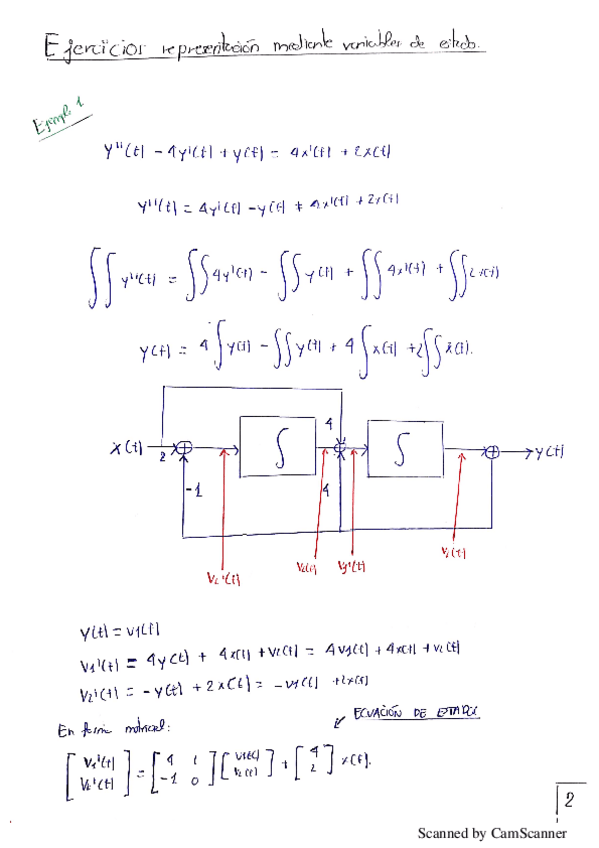 Ejercicios representación mediante variables de estado.
Ejemplo 1
y''(t) - 4y'(t) + y(t) = 4x'(t) + 2x(t)
y''(t) = 4y'(t) - y(t) + 4x'(t) + 2x(t)
∫∫ y''(t) = ∫∫ 4y'(t) - ∫∫ y(t) + ∫∫ 4x'(t) + ∫∫ 2x(t)
y(t) = 4∫ y(t) - ∫∫ y(t) + 4∫ x(t) + 2∫∫ x(t).
4
x(t) 2 ⊕ ∫ ∫ ⊕ y(t)
-1 4
v2'(t) v2(t) v1'(t) v1(t)
y(t) = v1(t)
v1'(t) = 4y(t) + 4x(t) + v2(t) = 4v1(t) + 4x(t) + v2(t)
v2'(t) = -y(t) + 2x(t) = -v1(t) + 2x(t)
En forma matricial:
ECUACIÓN DE ESTADOS
[v1'(t)] = [4 1] [v1(t)] + [4] x(t).
[v2'(t)] [-1 0] [v2(t)] [2]
2
Scanned by CamScanner